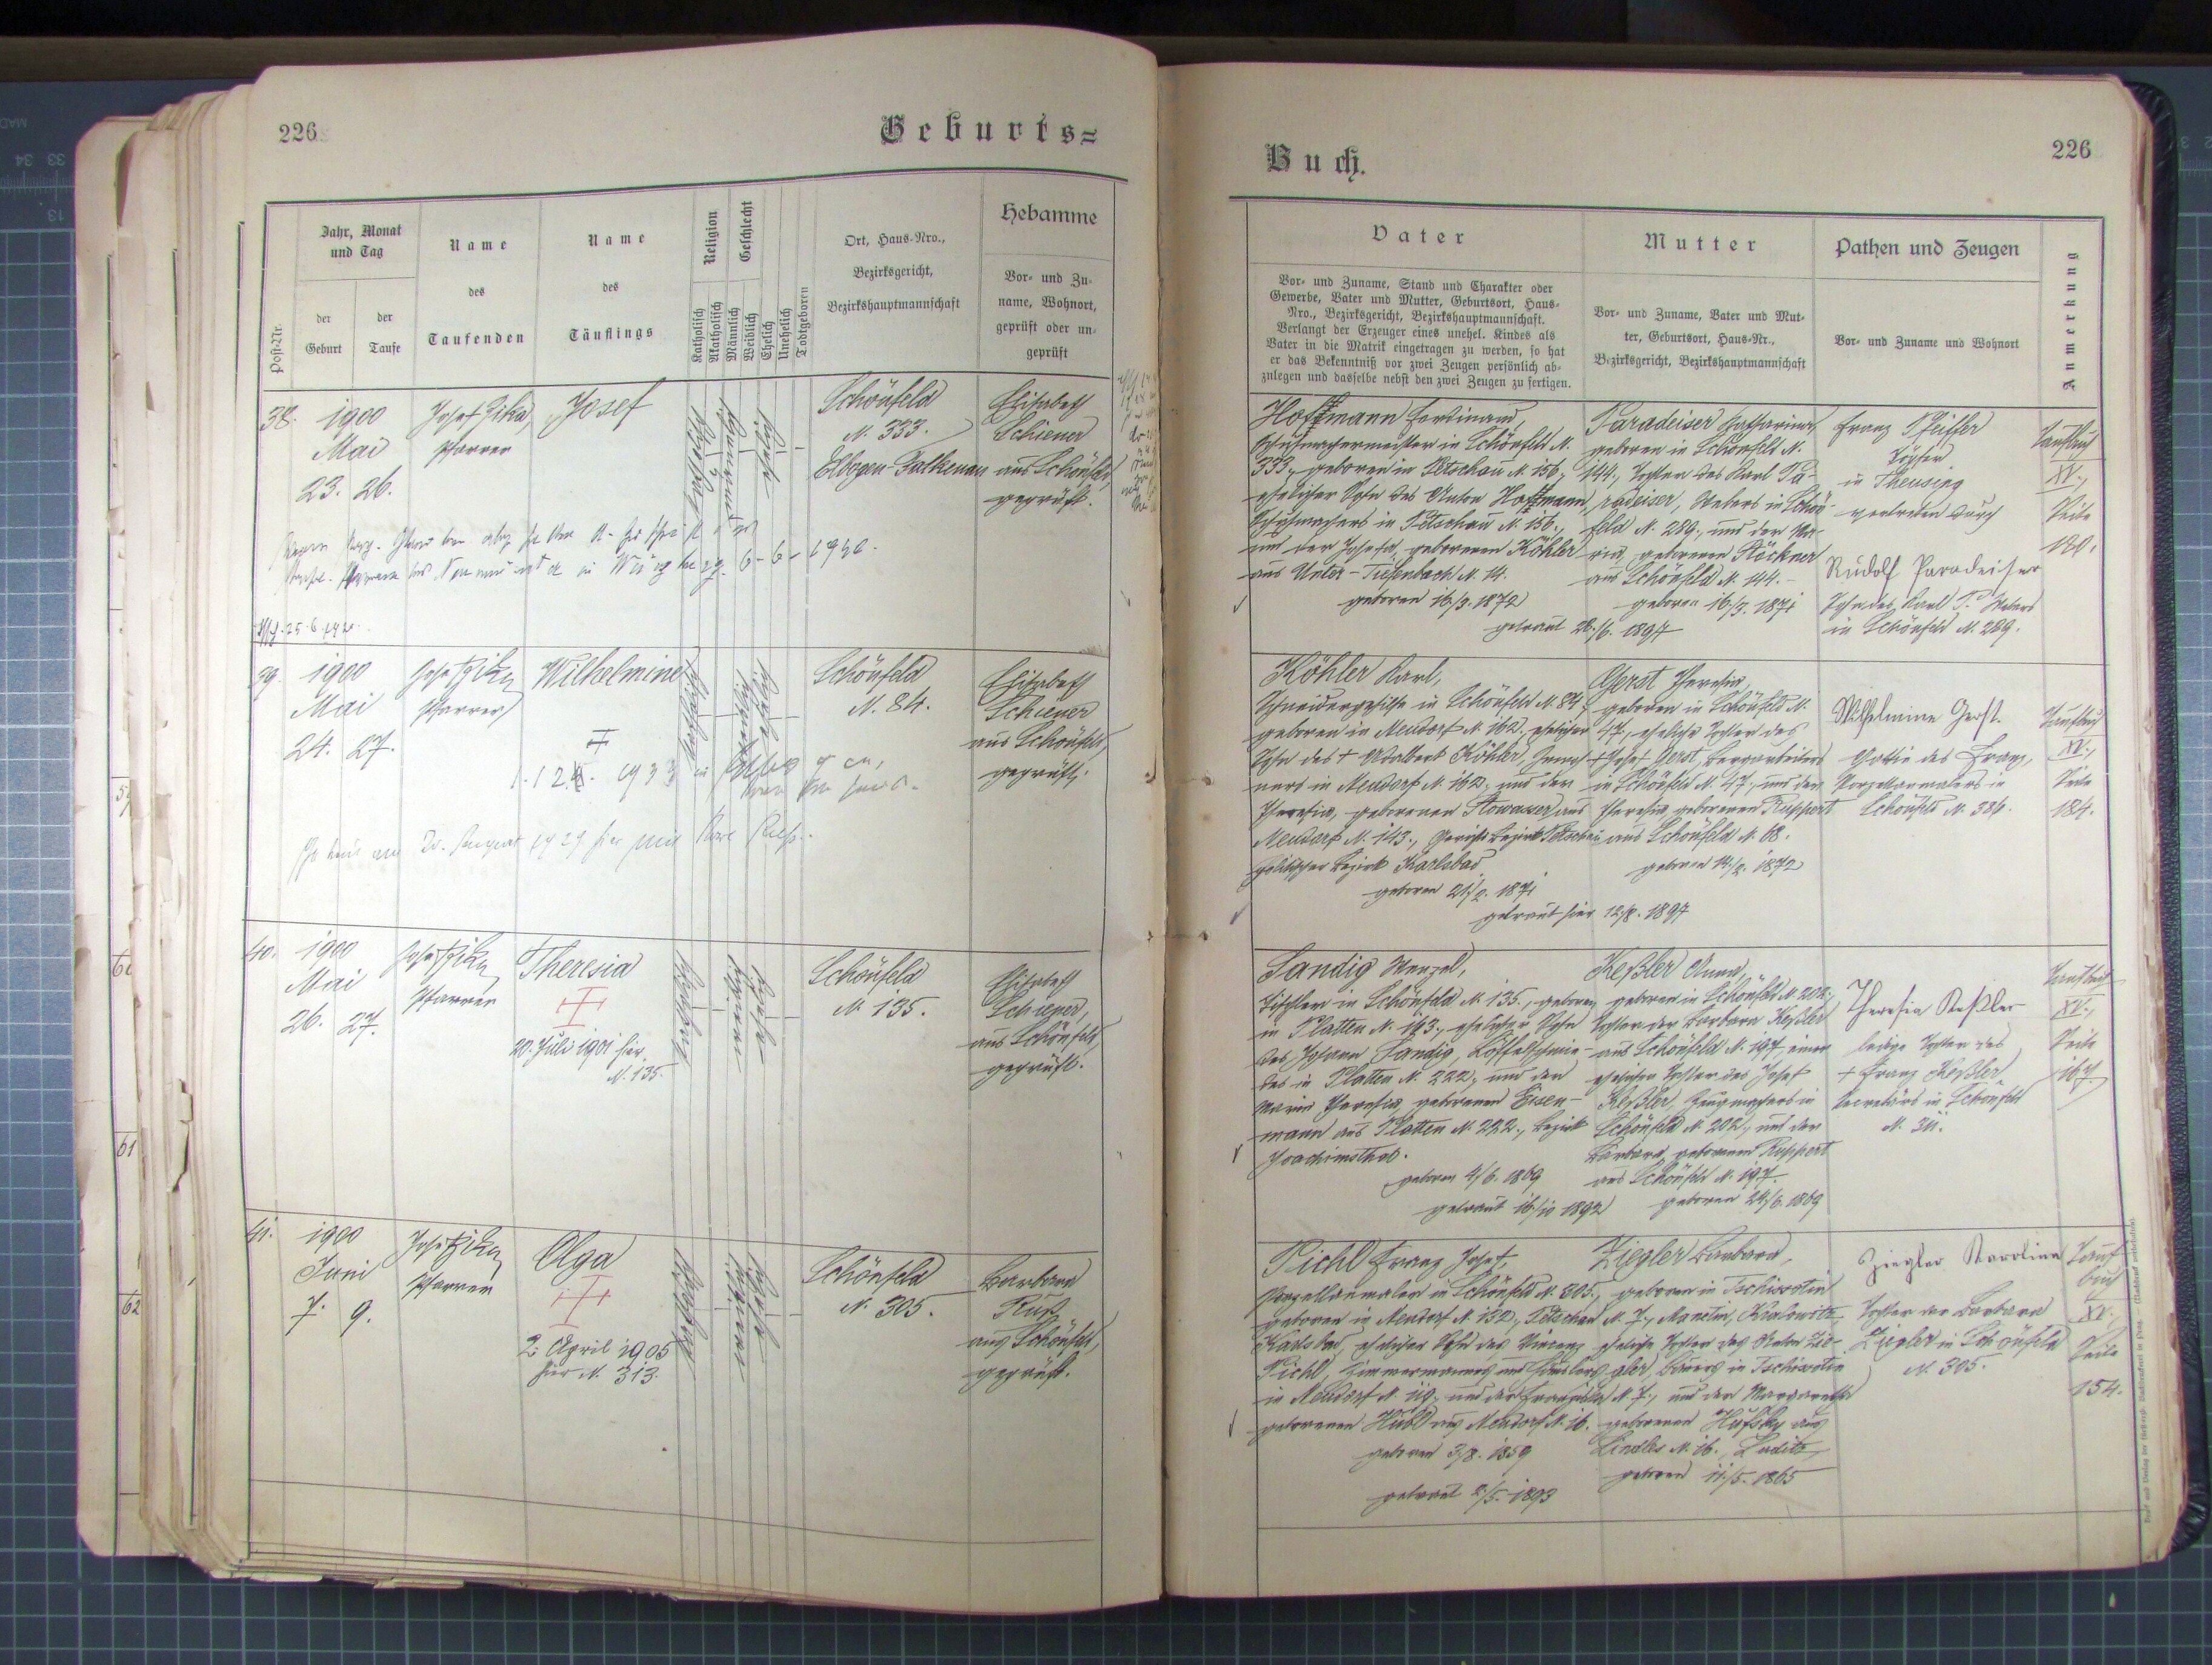 226
Geburts=
Post-Nr.
Jahr, Monat
und Tag
der
Geburt
der
Taufe
Name
des
Taufenden
Name
des
Täuflings
Religion
Katholisch
Akatholisch
Geschlecht
Männlich
Weiblich
Ehelich
Unehelich
Todtgeboren
Ort, Haus-Nro.,
Bezirksgericht,
Bezirkshauptmannschaft
Hebamme
Vor- und Zu-
name, Wohnort,
geprüft oder un-
geprüft
38.
1900
Mai
23. 26.
Josef Zika,
Pfarrer
Josef
Schönfeld
N. 333.
Elbogen-Falkenau
Elisabeth
Schiener
aus Schönfeld,
geprüft.
25.6.
39.
1900
Mai
24. 27.
Josef Zika
Pfarrer
Wilhelmine
1933 in
Schönfeld
N. 84.
Elisabeth
Schiener
aus Schönfeld,
geprüft.
40.
1900
Mai
26. 27.
Josef Zika
Pfarrer
Theresia
20. Juli 1901 hier
N. 135.
Schönfeld
N. 135.
Elisabeth
Schiener,
aus Schönfeld,
geprüft.
41.
1900
Juni
7. 9.
Josef Zika
Pfarrer
Olga
2. April 1905
hier N. 313.
Schönfeld
N. 305.
Barbara
Ruß
aus Schönfeld,
geprüft.
Buch.
226
Vater
Vor- und Zuname, Stand und Charakter oder
Gewerbe, Vater und Mutter, Geburtsort, Haus-
Nro., Bezirksgericht, Bezirkshauptmannschaft.
Verlangt der Erzeuger eines unehel. Kindes als
Vater in die Matrik eingetragen zu werden, so hat
er das Bekenntniß vor zwei Zeugen persönlich ab-
zulegen und dasselbe nebst den zwei Zeugen zu fertigen.
Mutter
Vor- und Zuname, Vater und Mut-
ter, Geburtsort, Haus-Nr.,
Bezirksgericht, Bezirkshauptmannschaft
Pathen und Zeugen
Vor- und Zuname und Wohnort
Anmerkung
Hoffmann Ferdinand,
Schuhmachermeister in Schönfeld N.
333., geboren in Petschau N. 156.,
ehelicher Sohn des Anton Hoffmann,
Schuhmachers in Petschau N. 156.,
und der Josefa, geborenen Köhler
aus Unter-Tiefenbach N. 14.
geboren 16/3. 1872
getraut 28./6. 1897
Paradeiser Katharina,
geboren in Schönfeld N.
144., Tochter des Karl Pa-
radeiser, Webers in Schön-
feld N. 289., und der Ma-
ria, geborenen Stöckner
aus Schönfeld N. 144.
geboren 16/3. 1871
Franz Pfeiffer
Töpfer
in Theusing
vertreten durch
Rudolf Paradeiser
Sohn des Karl P. Webers
in Schönfeld N. 289.
Taufbuch
XV.,
Seite
180.
Köhler Karl,
Schneidergehilfe in Schönfeld N. 84.,
geboren in Neudorf N. 162., ehelicher
Sohn des † Adalbert Köhler,
in Neudorf N. 162., und der
Theresia, geborenen Stowasser aus
Neudorf N. 143., Gerichtsbezirk Petschau
politischer Bezirk Karlsbad
geboren 21/2. 1871
getraut hier 12/8. 1897
Gerst Theresia,
geboren in Schönfeld N.
47., eheliche Tochter des
† Josef Gerst, Bergarbeiters
in Schönfeld N. 47., und der
Theresia geborenen Ruppert
aus Schönfeld N. 68.
geboren 14/2. 1872
Wilhelmine Gerst.
Gattin des Franz,
Porzellanmalers in
Schönfeld N. 336.
Taufbuch
XV.,
Seite
184.
Sandig Wenzel,
Töpfler in Schönfeld N. 135., geboren
in Platten N. 143., ehelicher Sohn
des Johann Sandig, Löffelschmie-
des in Platten N. 222., und der
Maria Theresia, geborenen Eisen-
mann aus Platten N. 222., Bezirk
Joachimsthal.
geboren 4/6. 1869
getraut 16/10 1892
Keßler Anna,
geboren in Schönfeld N. 202.,
Tochter der Barbara Keßler
aus Schönfeld N. 197, einer
ehelichen Tochter des Josef
Keßler, Zeugmachers in
Schönfeld N. 202., und der
Barbara, geborenen Ruppert
aus Schönfeld N. 197.
geboren 24/6. 1869
Theresia Keßler
ledige Tochter des
† Franz Keßler
Secretärs in Schönfeld
N. 311.
Taufbuch
XV.,
Seite
167.
Pichl Franz Josef,
Porzellanmaler in Schönfeld N. 305.,
geboren in Neudorf N. 132., Petschau
Karlsbad, ehelicher Sohn des Vincenz
Pichl, Zimmermannes und Häuslers
in Neudorf N. 119. und der Franziska
geborenen Hübl aus Neudorf N. 16.
geboren 3/8. 1859
getraut 2/5. 1893
Ziegler Barbara,
geboren in Tschiwotin
N. 7., Manetin, Kralowitz
eheliche Tochter des Anton Zie-
gler, Bauers in Tschiwotin
N. 7., und der Margaretha
geborenen Hufsky aus
Lindles N. 16., Luditz,
geboren 11/5. 1865
Ziegler Karolina
Tochter der Barbara
Ziegler in Schönfeld
N. 305.
Tauf
buch
XV.
Seite
154.
57
61
62